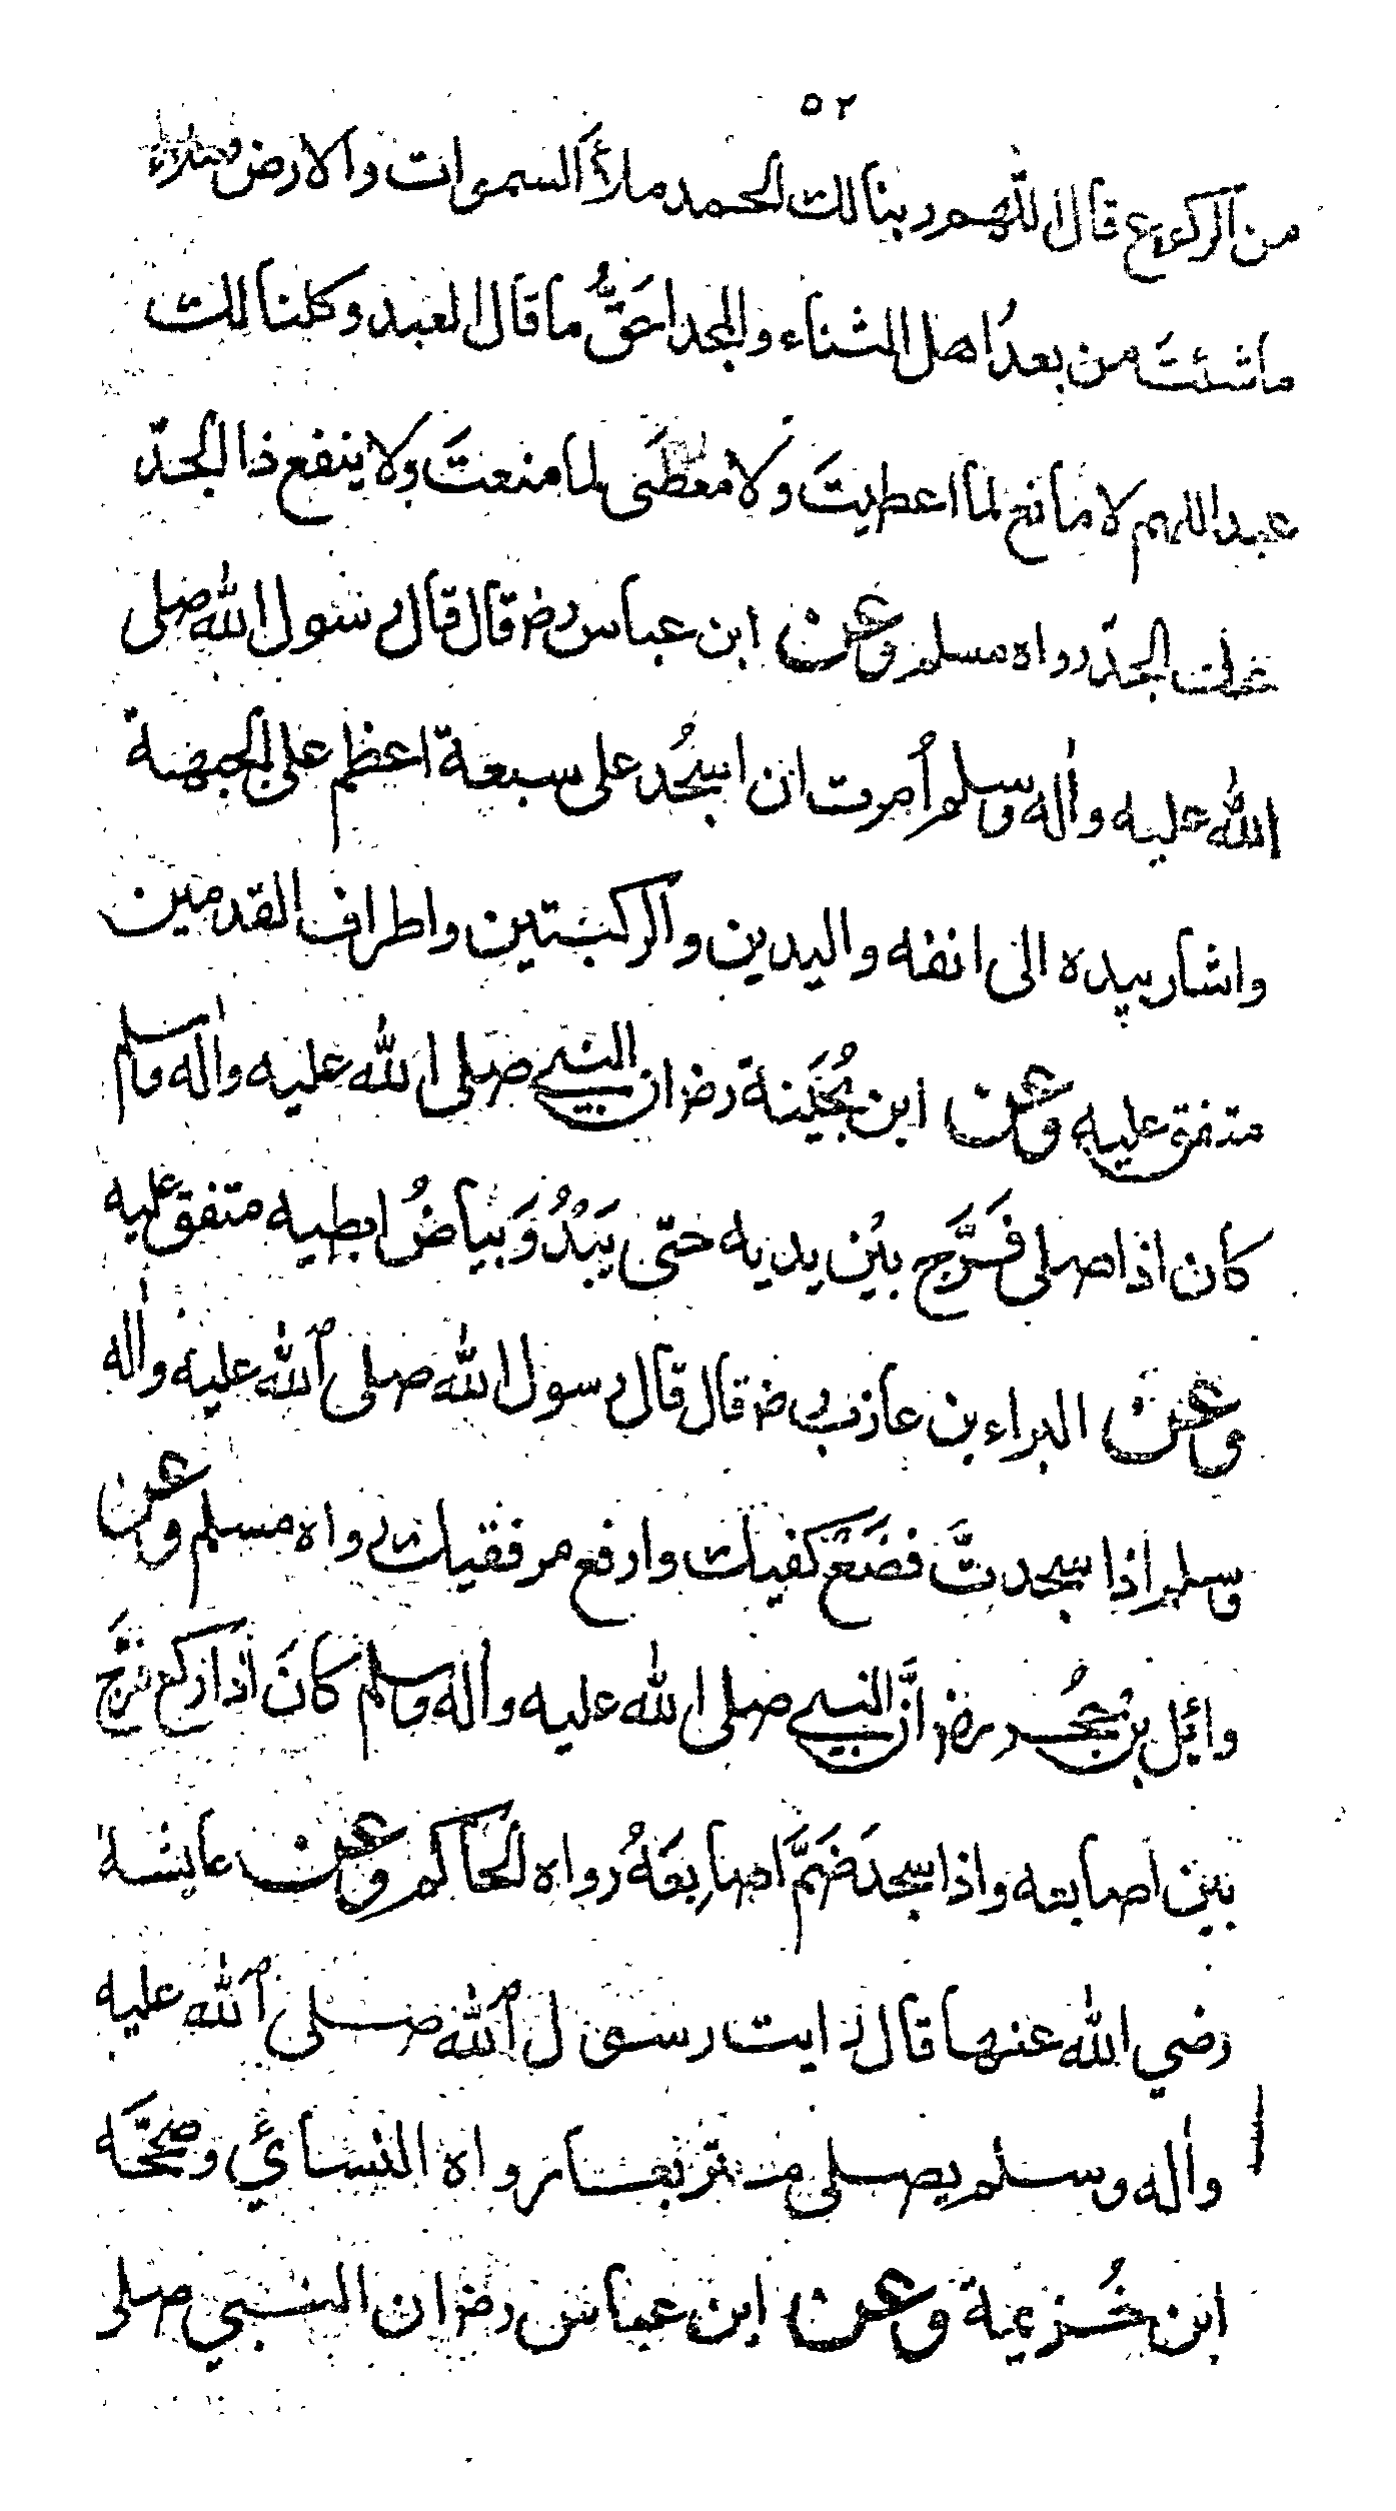 ٥٢
من الركوع قال اللهم ربنا لك الحمد ملأَ السموات والارض وملاء
ما شئتَ من بعدُ اهل الثناء والمجد احَقُّ ما قال العبد وكلنا لك
عبد اللهم لا مانع لما اعطيتَ ولا معطىَ لما منعتَ ولا ينفع ذا الجدّ
منك الجدّ رواه مسلم وعن ابن عباس رض قال قال رسول الله صلى
الله عليه واٰله وسلم اُمرت ان اسجُد على سبعة اعظم على الجبهة
واشار بيده الى انفه واليدين والركبتين واطراف القدمين
متفق عليه وعن ابن بُحَينة رض ان النبي صلى الله عليه واٰله وسلم
كان اذا صلى فَرَّج بين يديه حتى يَبْدُوَ بياضُ ابطيه متفق عليه
وعن البراء بن عازب رض قال قال رسول الله صلى الله عليه واٰله
وسلم اذا سجدتَّ فضَعْ كفيك وارفع مرفقيك رواه مسلم وعن
وائل بن حُجر رض انَّ النبي صلى الله عليه واٰله وسلم كانَ اذا ركع فرَّج
بين اصابعه واذا سجدَ ضَمَّ اصابعَهُ رواه الحاكم وعن عايشة
رضي الله عنها قال رايت رسول الله صلى الله عليه
واٰله وسلم يصلى متربعا رواه النسائي وصححَّه
ابن خُزيمة وعن ابن عباس رض ان النبي صلى